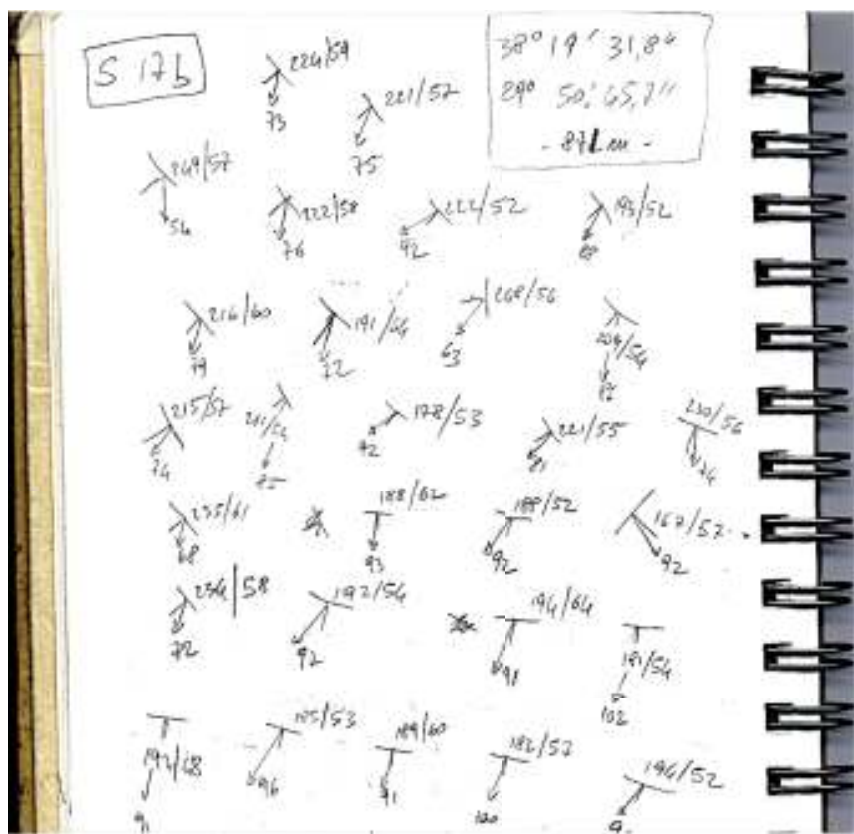 S 17b
38° 19' 31,8"
29° 50' 45,7"
224/59
73
221/57
75
249/57
54
222/58
76
222/52
92
193/52
88
216/60
79
191/64
72
268/56
63
204/54
215/57
74
75
178/53
92
221/55
81
230/56
74
235/61
68
188/62
93
188/52
92
167/52
92
234/58
72
192/54
92
194/64
91
191/54
102
91
96
189/60
91
182/52
100
194/52